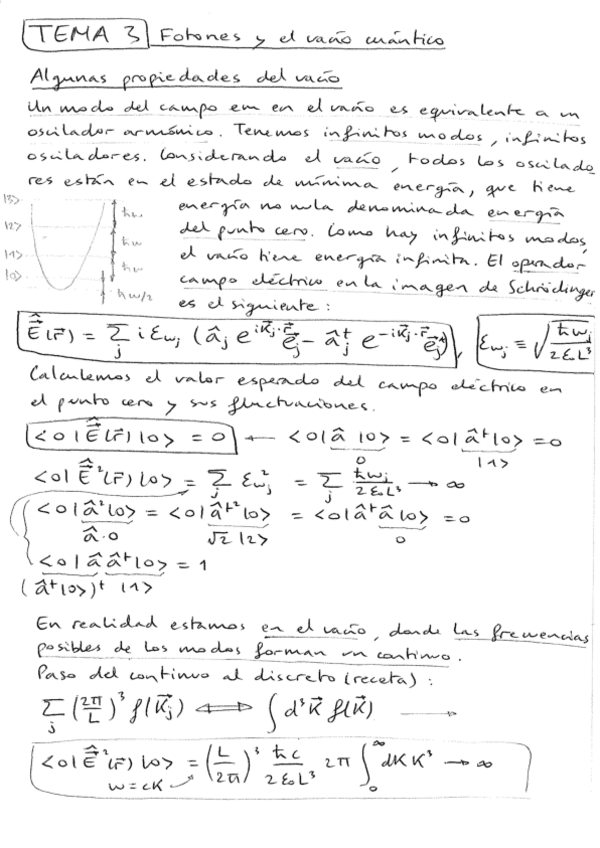 TEMA 3 Fotones y el vacío cuántico
Algunas propiedades del vacío
Un modo del campo em en el vacío es equivalente a un
oscilador armónico. Tenemos infinitos modos, infinitos
osciladores. Considerando el vacío, todos los oscilado
res están en el estado de mínima energía, que tiene
|3> |2> |1> |0> ħω ħω ħω ħω/2
energía no nula denominada energía
del punto cero. Como hay infinitos modos,
el vacío tiene energía infinita. El operador
campo eléctrico en la imagen de Schrödinger
es el siguiente:
Ê(r⃗) = Σ_j i ε_ωj (â_j e^{i k⃗_j·r⃗} e⃗_j − â_j† e^{−i k⃗_j·r⃗} e⃗_j*), ε_ωj = √(ħω_j / 2ε₀L³)
Calculemos el valor esperado del campo eléctrico en
el punto cero y sus fluctuaciones.
<0|Ê(r⃗)|0> = 0 ← <0|â|0> = <0|â†|0> = 0
0 |1>
<0|Ê²(r⃗)|0> = Σ_j ε²_ωj = Σ_j ħω_j / 2ε₀L³ → ∞
<0|â²|0> = <0|â†²|0> = <0|â†â|0> = 0
â·0 √2 |2> 0
<0|ââ†|0> = 1
(â†|0>)† |1>
En realidad estamos en el vacío, donde las frecuencias
posibles de los modos forman un continuo.
Paso del continuo al discreto (receta):
Σ_j (2π/L)³ f(k⃗_j) ⟺ ∫ d³k⃗ f(k⃗) →
<0|Ê²(r⃗)|0> = (L/2π)³ ħc/2ε₀L³ 2π ∫₀^∞ dK K³ → ∞
ω = cK